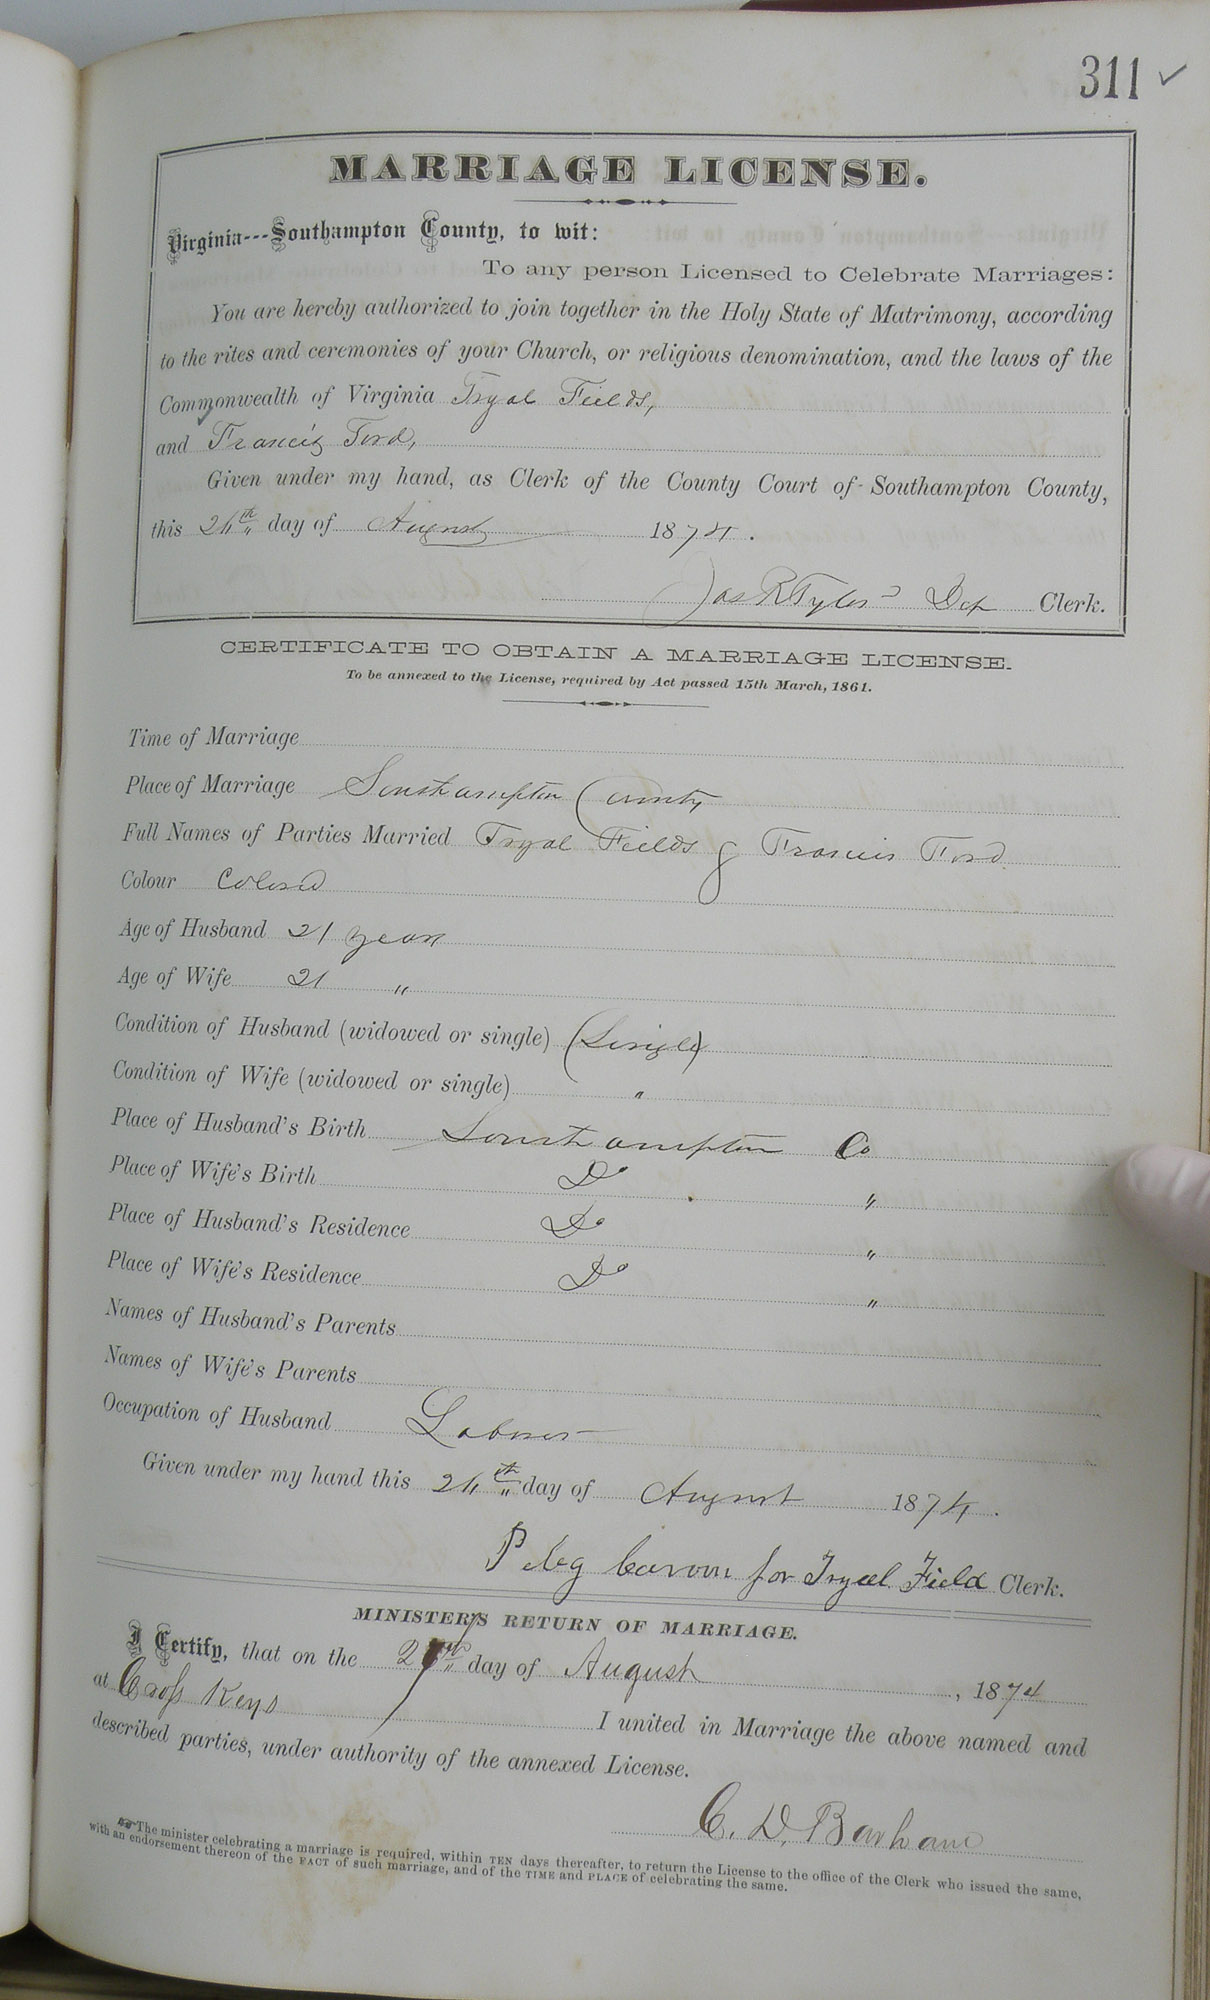 311 ✓
MARRIAGE LICENSE.
Virginia---Southampton County, to wit:
To any person Licensed to Celebrate Marriages:
You are hereby authorized to join together in the Holy State of Matrimony, according
to the rites and ceremonies of your Church, or religious denomination, and the laws of the
Commonwealth of Virginia Tryal Fields,
and Francis Ford,
Given under my hand, as Clerk of the County Court of Southampton County,
this 24th day of August 1874.
Jas R Tyler Dep Clerk.
CERTIFICATE TO OBTAIN A MARRIAGE LICENSE.
To be annexed to the License, required by Act passed 15th March, 1861.
Time of Marriage
Place of Marriage Southampton County
Full Names of Parties Married Tryal Fields & Francis Ford
Colour Colored
Age of Husband 21 years
Age of Wife 21 "
Condition of Husband (widowed or single) (Single)
Condition of Wife (widowed or single) "
Place of Husband's Birth Southampton Co
Place of Wife's Birth Do "
Place of Husband's Residence Do "
Place of Wife's Residence Do "
Names of Husband's Parents
Names of Wife's Parents
Occupation of Husband Laborer
Given under my hand this 24th day of August 1874.
Peleg for Tryal Field Clerk.
MINISTER'S RETURN OF MARRIAGE.
I Certify, that on the day of August, 1874
at Cross Keys I united in Marriage the above named and
described parties, under authority of the annexed License.
C. D. Barham
The minister celebrating a marriage is required, within TEN days thereafter, to return the License to the office of the Clerk who issued the same,
with an endorsement thereon of the FACT of such marriage, and of the TIME and PLACE of celebrating the same.